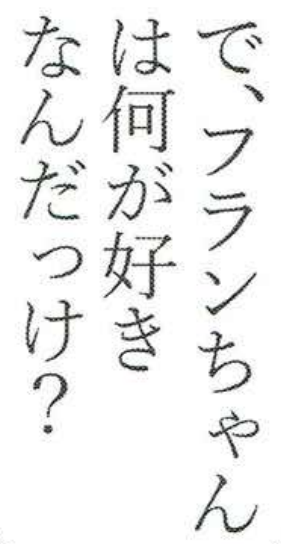 で、フランちゃん
は何が好き
なんだっけ？